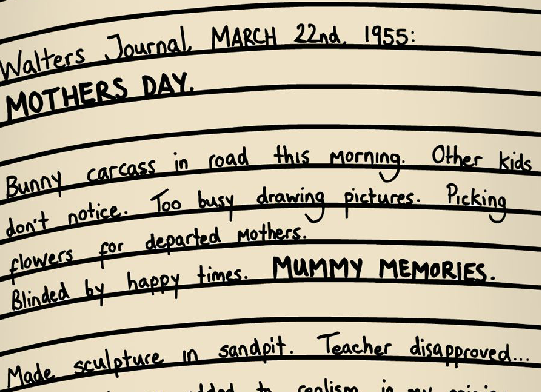 Walters Journal. MARCH 22nd. 1955:
MOTHERS DAY.
Bunny carcass in road this morning. Other kids
don't notice. Too busy drawing pictures. Picking
flowers for departed mothers.
Blinded by happy times. MUMMY MEMORIES.
Made sculpture in sandpit. Teacher disapproved...
to realism in my